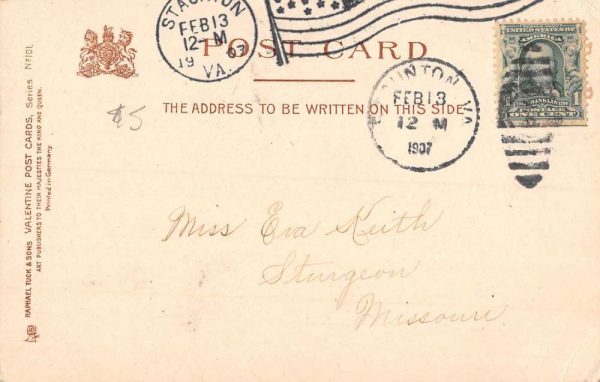 STAUNTON
FEB 13
12 - M
19 07
VA.
POST CARD
THE ADDRESS TO BE WRITTEN ON THIS SIDE
$5
STAUNTON, VA
FEB 13
12 M
1907
UNITED STATES OF
AMERICA
FRANKLIN
1
POSTAGE
ONE CENT
RAPHAEL TUCK & SONS VALENTINE POST CARDS, Series No 101.
ART PUBLISHERS TO THEIR MAJESTIES THE KING AND QUEEN.
Printed in Germany
Miss Eva Keith
Sturgeon
Missouri